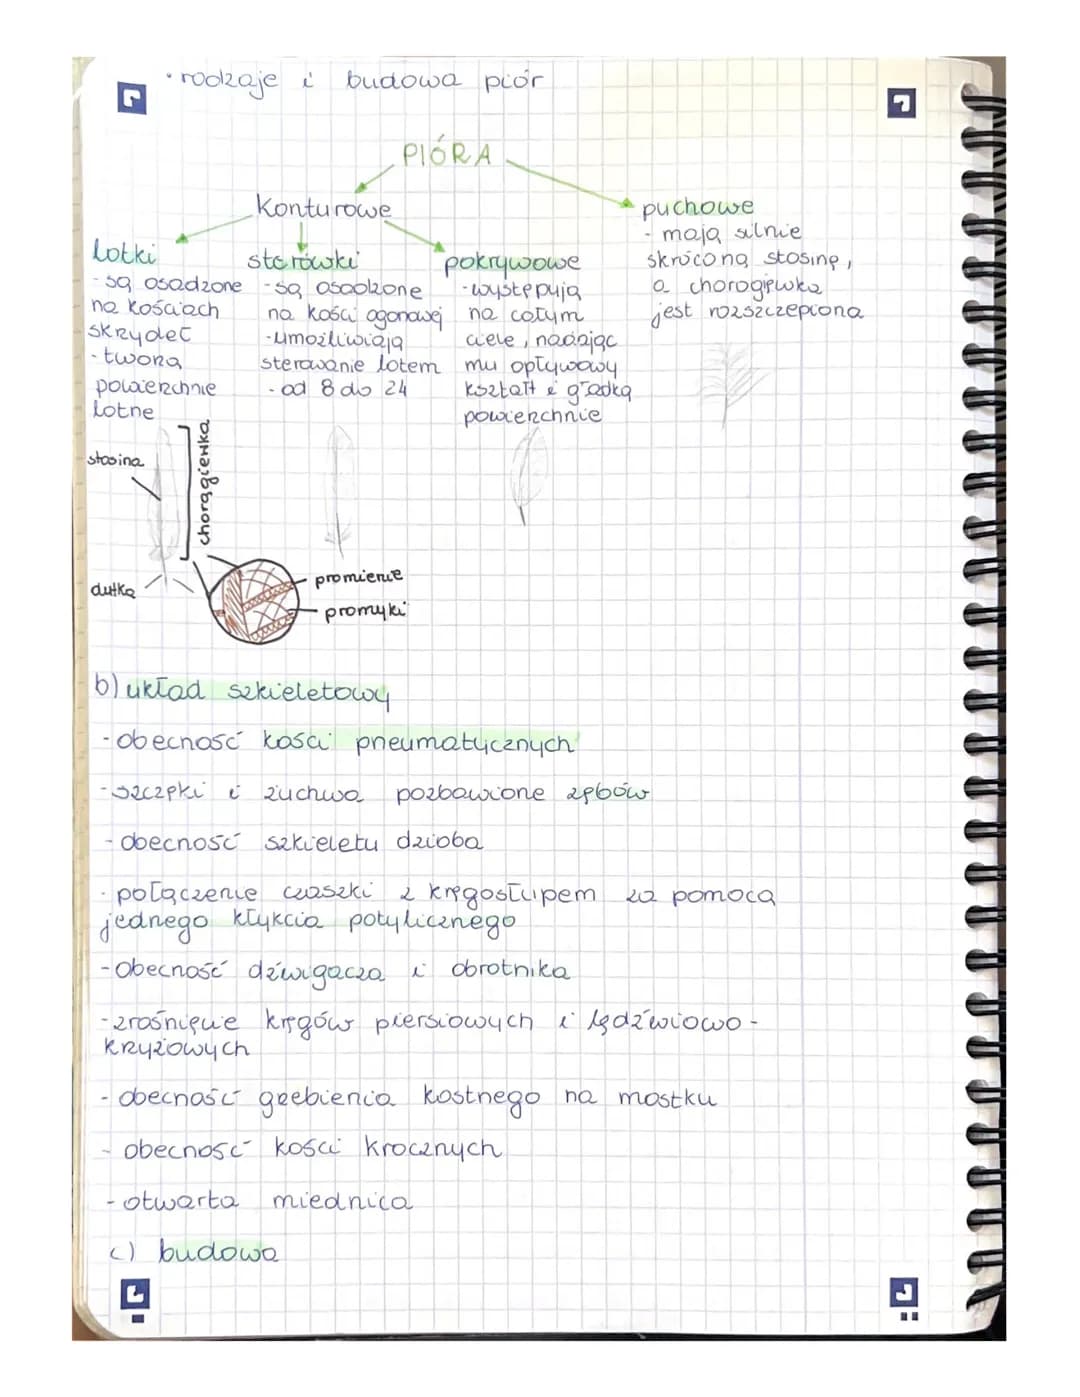 • rodzaje i budowa piór
PIÓRA
Konturowe
puchowe
- mają silnie
skróconą stosinę,
a chorogiewka
jest rozszczepiona
lotki
- są osadzone
na kościach
skrzydeł
- tworzą
powierzchnie
lotne
sterówki
- są osadzone
na kości ogonowej
- umożliwiają
sterowanie lotem
- od 8 do 24
pokrywowe
- występują
na całym
ciele, nadając
mu opływowy
kształt i gładką
powierzchnie
stosina
chorągiewka
dutka
promienie
promyki
b) układ szkieletowy
- obecność kości pneumatycznych
- szczęki i żuchwa pozbawione zębów
- obecność szkieletu dzioba
- połączenie czaszki z kręgosłupem za pomocą
jednego kłykcia potylicznego
- obecność dźwigacza i obrotnika
- zrośnięcie kręgów piersiowych i lędźwiowo-
krzyżowych
- obecność grzebienia kostnego na mostku
- obecność kości kroczných
- otwarta miednica
c) budowa